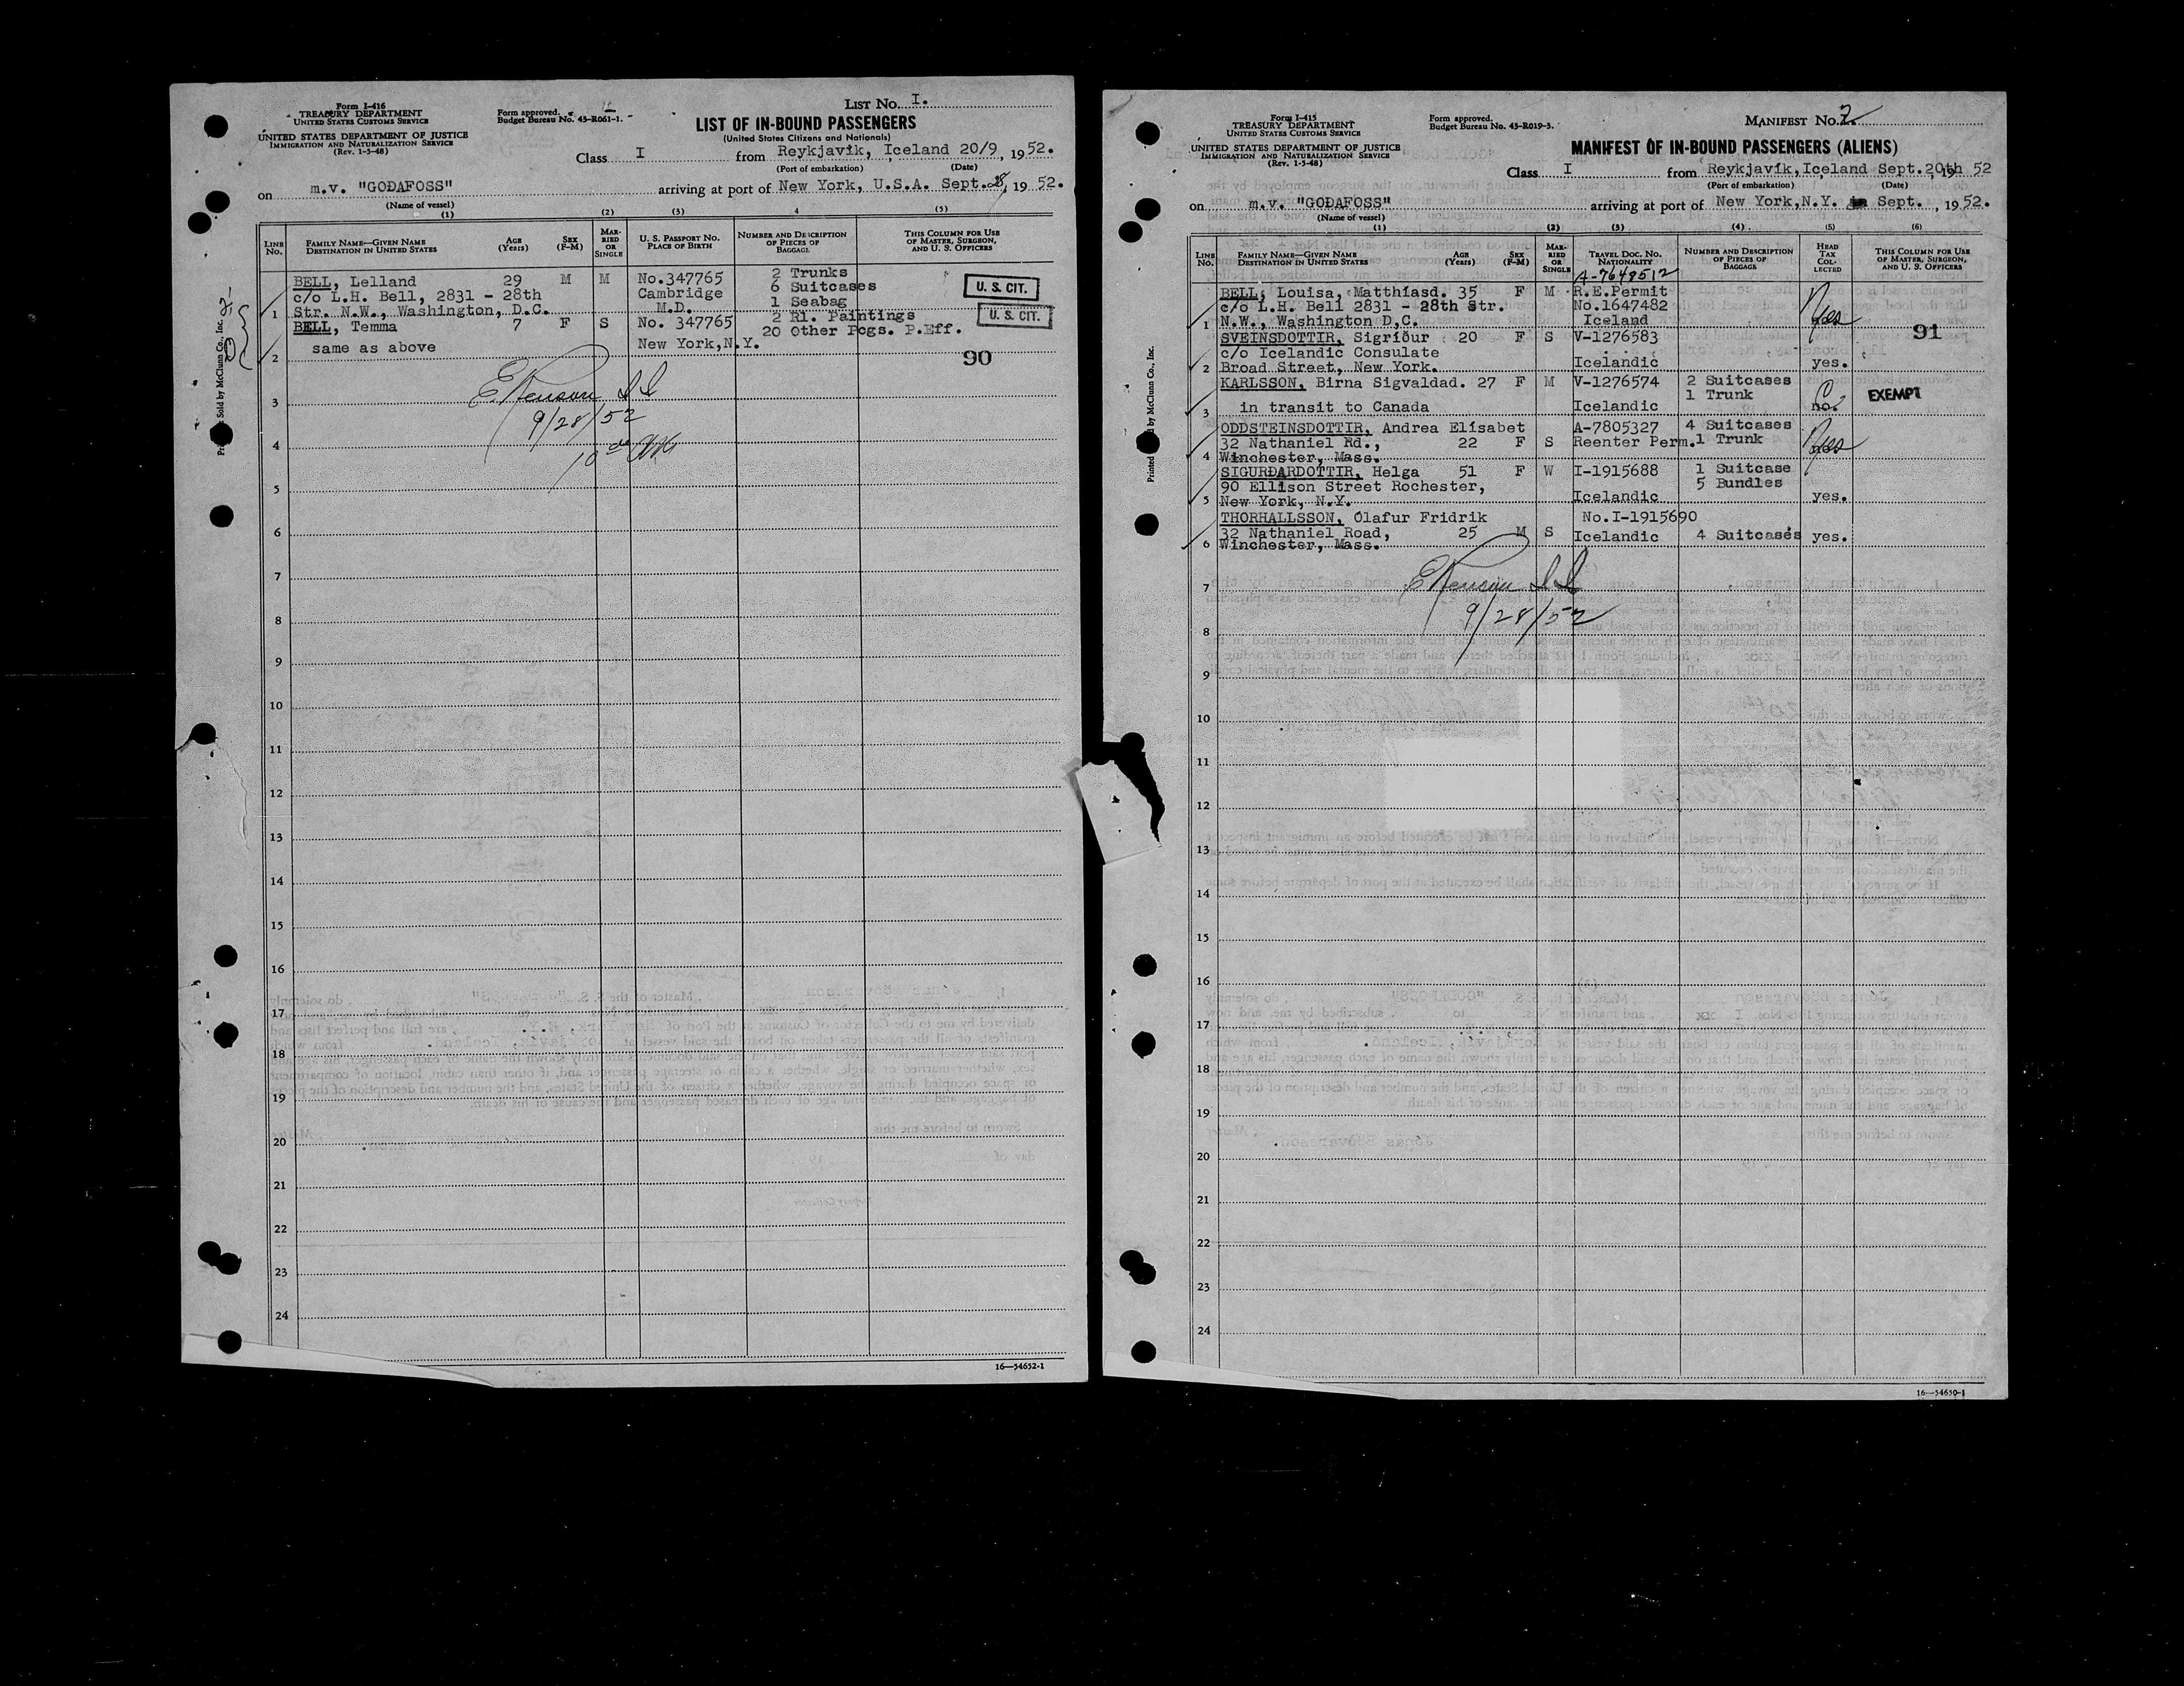 Form I-416
TREASURY DEPARTMENT
UNITED STATES CUSTOMS SERVICE
UNITED STATES DEPARTMENT OF JUSTICE
IMMIGRATION AND NATURALIZATION SERVICE
(Rev. 1-3-48)
Form approved.
Budget Bureau No. 43-R061-1.
LIST No. I.
LIST OF IN-BOUND PASSENGERS
(United States Citizens and Nationals)
Class I from Reykjavik, Iceland 20/9, 1952.
(Port of embarkation) (Date)
on m.v. "GOÐAFOSS" arriving at port of New York, U.S.A. Sept. 28, 1952.
(Name of vessel)
(1) (2) (3) 4 (5)
LINE No. FAMILY NAME—GIVEN NAME DESTINATION IN UNITED STATES AGE (Years) SEX (F-M) MARRIED OR SINGLE U. S. PASSPORT No. PLACE OF BIRTH NUMBER AND DESCRIPTION OF PIECES OF BAGGAGE THIS COLUMN FOR USE OF MASTER, SURGEON, AND U. S. OFFICERS
BELL, Lelland 29 M M No.347765 2 Trunks
c/o L.H. Bell, 2831 - 28th Cambridge 6 Suitcases U. S. CIT.
1 Str. N.W., Washington, D.C. M.D. 1 Seabag
BELL, Temma 7 F S No. 347765 2 Rl. Paintings U. S. CIT.
20 Other Pcgs. P.Eff.
2 same as above New York,N.Y.
90
3
9/28/52
4
5
6
7
8
9
10
11
12
13
14
15
16
17
18
19
20
21
22
23
24
16—54652-1
Sold by McClunn Co., Inc.
Form I-415
TREASURY DEPARTMENT
UNITED STATES CUSTOMS SERVICE
UNITED STATES DEPARTMENT OF JUSTICE
IMMIGRATION AND NATURALIZATION SERVICE
(Rev. 1-3-48)
Form approved.
Budget Bureau No. 43-R019-3.
MANIFEST No. 2.
MANIFEST OF IN-BOUND PASSENGERS (ALIENS)
Class I from Reykjavík, Iceland Sept.20th, 19 52
(Port of embarkation) (Date)
on m.v. "GOÐAFOSS" arriving at port of New York,N.Y. Sept. , 1952.
(Name of vessel)
(1) (2) (3) (4) (5) (6)
LINE No. FAMILY NAME—GIVEN NAME DESTINATION IN UNITED STATES AGE (Years) SEX (F-M) MARRIED OR SINGLE TRAVEL DOC. NO. NATIONALITY NUMBER AND DESCRIPTION OF PIECES OF BAGGAGE HEAD TAX COLLECTED THIS COLUMN FOR USE OF MASTER, SURGEON, AND U. S. OFFICERS
A-7648512
BELL, Louisa, Matthíasd. 35 F M R.E.Permit
c/o L.H. Bell 2831 - 28th Str. No.1647482
1 N.W., Washington D,C. Iceland yes
91
SVEINSDOTTIR, Sigríður 20 F S V-1276583
c/o Icelandic Consulate
2 Broad Street, New York. Icelandic yes.
KARLSSON, Birna Sigvaldad. 27 F M V-1276574 2 Suitcases
1 Trunk EXEMPT
3 in transit to Canada Icelandic no.
ODDSTEINSDOTTIR, Andrea Elísabet A-7805327 4 Suitcases
32 Nathaniel Rd., 22 F S Reenter Perm. 1 Trunk yes
4 Winchester, Mass.
SIGURÐARDOTTIR, Helga 51 F W I-1915688 1 Suitcase
90 Ellison Street Rochester, 5 Bundles
5 New York, N.Y. Icelandic yes.
THORHALLSSON, Olafur Fridrik No.I-1915690
32 Nathaniel Road, 25 M S Icelandic 4 Suitcases yes.
6 Winchester, Mass.
7
9/28/52
8
9
10
11
12
13
14
15
16
17
18
19
20
21
22
23
24
16—54650-1
Printed by McClunn Co., Inc.